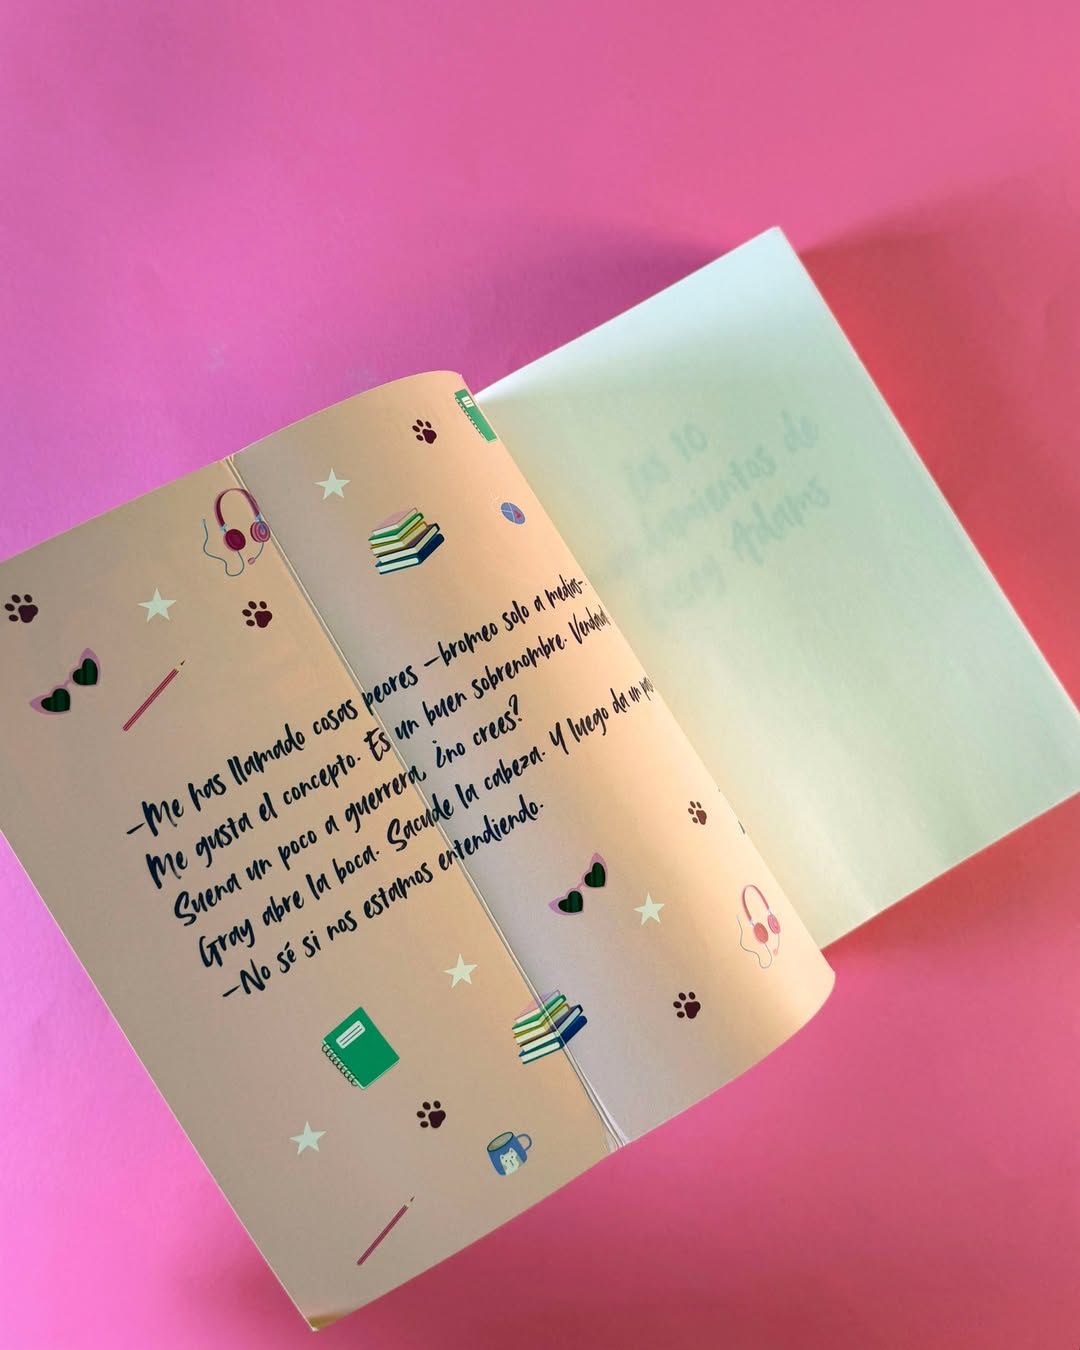 —Me has llamado cosas peores —bromeo solo a medias—.
Me gusta el concepto. Es un buen sobrenombre.
Suena un poco a guerrera, ¿no crees?
Gray abre la boca. Sacude la cabeza. Y luego da un
—No sé si nos estamos entendiendo.
10
de
Adams